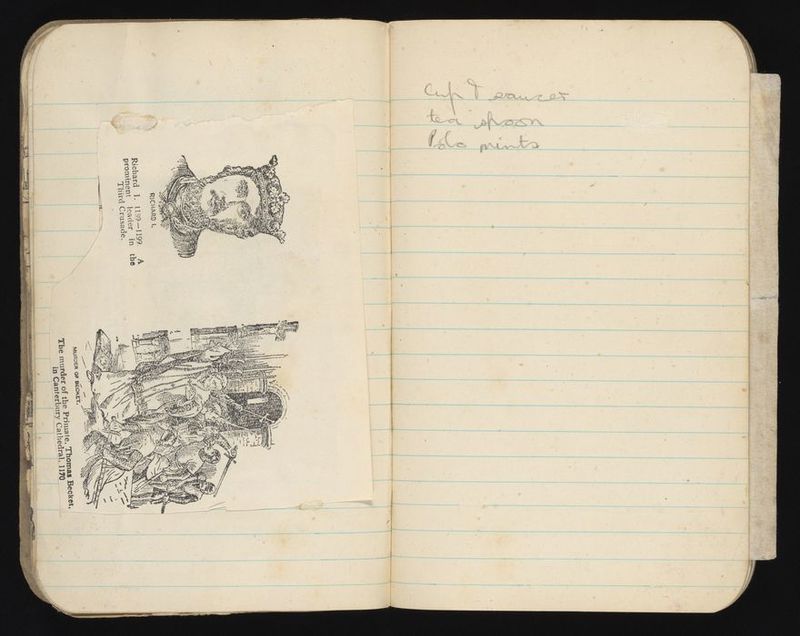 RICHARD I.
Richard I. 1189–1199 A
prominent leader in the
Third Crusade.
MURDER OF BECKET.
The murder of the Primate, Thomas Becket,
in Canterbury Cathedral, 1170
Cup & saucer
tea spoon
Polo mints